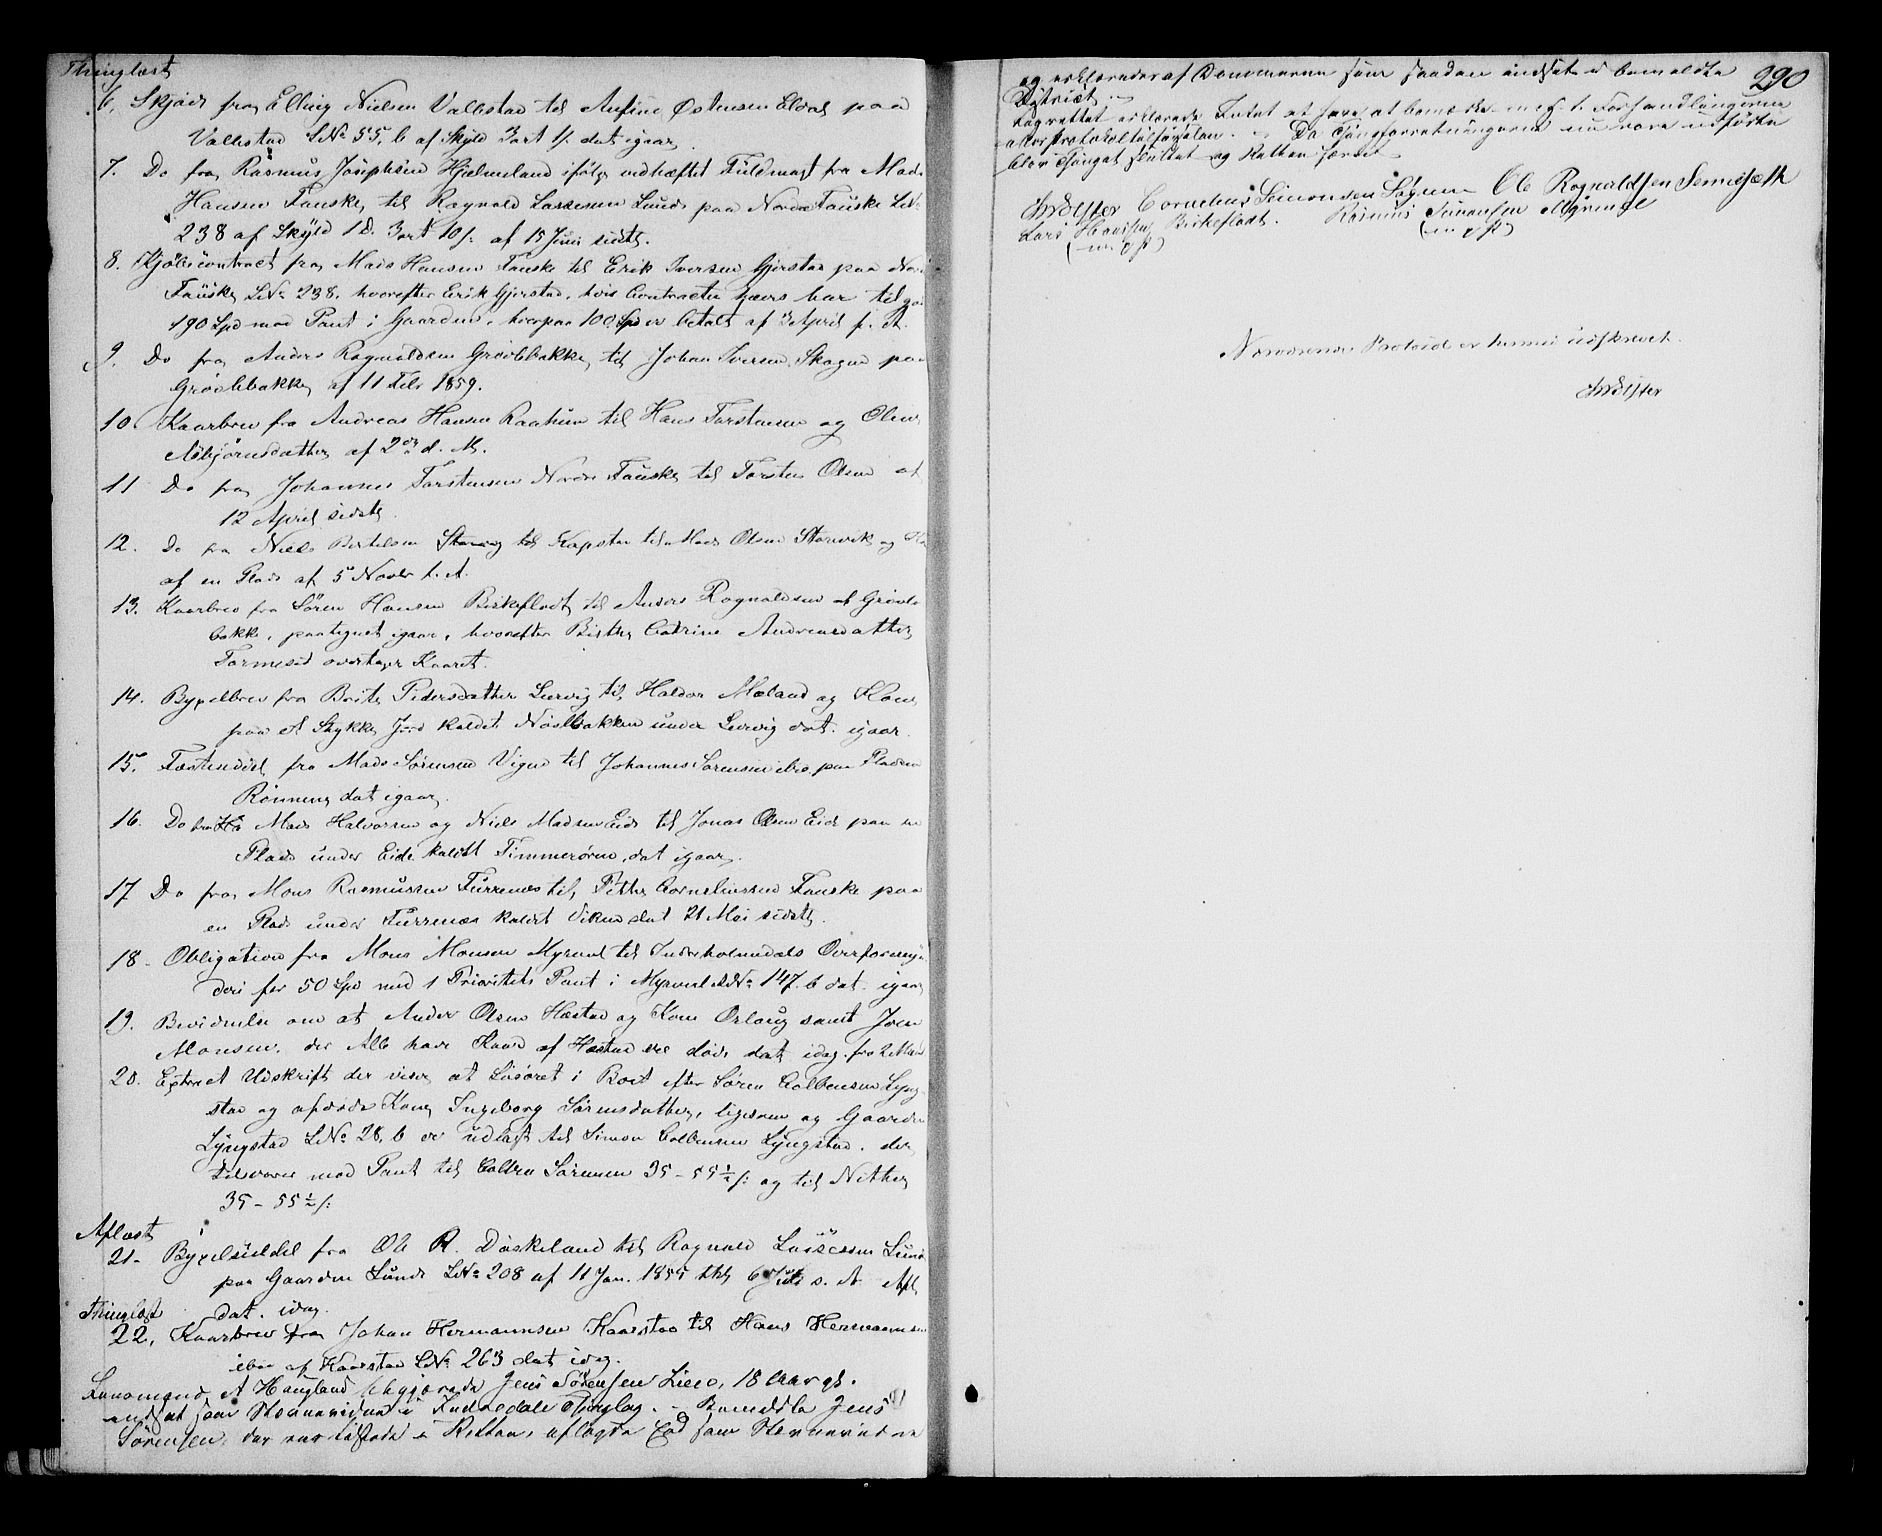 Thinglæst
6. Skjøde fra Elling Nielsen Vallestad til Anfind Østensen Eldal paa
Vallestad LNo 55, b af Skyld 3 ort 1/. dat igaar.
7. Do fra Rasmus Josephsen Hjelmeland ifølge vedhæftet Fuldmagt fra Mads
Hansen Fauske til Ragnald Lassesen Lunde paa Nordre Fauske LNo
238 af Skyld 1 D. 3 ort 10/: af 15 Juni sidstl.
8. Kjøbecontract fra Mads Hansen Fauske til Erik Iversen Gjerstad paa Nord
Fauske LNo 238, hvorefter Erik Gjerstad, hvis Contracten hæves har tilgode
190 Spd mod Pant i Gaarden, hvorpaa 100 Spd er betalt af 3 April f. A.
9. Do fra Anders Ragnaldsen Grovlebakke til Johan Iversen Skagen paa
Grovlebakke af 11 Febr 1859.
10 Kaarbrev fra Andreas Hansen Raaheim til Hans Torstensen og Oline
Asbjørnsdatter af 2den d. M.
11 Do fra Johannes Torstensen Nordre Fauske til Torsten Olsen af
12 April sidstl.
12. Do fra Niels Bertelsen til Mads Olsen Storevik og
af en Plads af 5 Novbr f. A.
13. Kaarbrev fra Søren Hansen Birkeflodt til Anders Ragnaldsen af Grovle
bakke, paategnet igaar, hvorefter Birthe Catrine Andreasdatter
overtager Kaaret.
14. Bygselbrev fra Brite Pedersdatter Lervig til Haldor Mæland og Kone
paa et Stykke Jord kaldet Nøstbakken under Lervig dat. igaar.
15. Fæsteseddel fra Mads Sørensen Vigen til Johannes Sørensen ibid. paa Pladsen
Rønnene dat igaar.
16. Do fra Mads Halvorsen og Niels Madsen Eide til Jonas Olsen Eide paa en
Plads under Eide kaldet Timmerøren, dat igaar.
17 Do fra Mons Rasmussen Furrenes til Peter Corneliussen Fauske paa
en Plads under Furrenæs kaldet Viken dat 21 Mai sidstl.
18. Obligation fra Mons Monsen Myrvel til Inderholmedals Overformyn
deri for 50 Spd med 1 Prioritets Pant i Myrvel LNo 147. b dat. igaar
19. Bevidnelse om at Anders Olsen Hæstad og Kone samt Joen
Monsen, der Alle have Kaar af Hæstad ere døde dat idag fra 2 Mænd
20. Extract Udskrift der viser at Løsøret i Boet efter Søren Colbensen Lyng
stad og afdøde Kone Ingeborg Sørensdatter, ligesom og Gaarden
Lyngstad LNo 28, b er udlagt til Simon Colbensen Lyngstad. der
tilsvarer mod Pant til Colben Sørensen 35 - 55 ½ /: og til
35 - 55 ½ /:
Aflæst
21. Bygselseddel fra Ole R. Døskeland til Ragnald Lassesen Lunde
paa Gaarden Lunde LNo 208 af 11 Jan. 1855 6 Juli s. A. Afl.
dat. idag.
Thinglæst
22. Kaarbrev fra Johan Hermannsen Kaarstad til Hans Hermannsen
ibid af Kaarstad LNo 263 dat idag.
Lensmand A Haugland begjærede Jens Sørensen Liere, 18 Aar gl.
ansat som Stevnevidne i Indredale Thinglag. - Bemeldte Jens
Sørensen, der var tilstede i Retten, aflagde Eed som Stevnevidne
290
og erklæredes af Donomareren som saadan ansat i bemeldte
District. -
Lagrettet erklærede Intet at have at bemærke m. H. t. Forhandlingerne
eller Protokoltilførselen. - Da Thingforretningerne nu vare udførte
blev Thinget sluttet og Retten hævet. -
Cornelius Simonsen Ole Ragnaldsen
Lars Hansen Birkeflodt. Rasmus Sørensen
(m p P) (m p P)
Nærværende Protocol er hermed udskrevet.